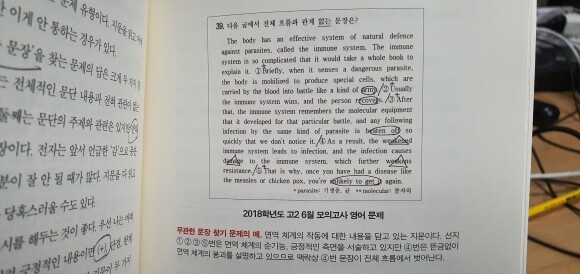 문제 유형이다. 지문을 읽고
이게 안 통하는 경우가 있다.
문장'을 찾는 문제의 답은 크게 두 가지
는 전체적인 문단 내용과 전혀 관련이 없는
둘째는 문단의 주제와 관련은 있지만
장이다. 전자는 앞서 언급한 '감'으로
분이 잘 안 될 때가 많다. 지문을 다 읽고
당혹스러울 수도 있다.
시를 해두는 것이 좋다. 우선 나는
긍정적인 내용이면 (+),
39. 다음 글에서 전체 흐름과 관계 없는 문장은?
The body has an effective system of natural defence
against parasites, called the immune system. The immune
system is so complicated that it would take a whole book to
explain it. ① Briefly, when it senses a dangerous parasite,
the body is mobilized to produce special cells, which are
carried by the blood into battle like a kind of army. ② Usually
the immune system wins, and the person recovers. ③ After
that, the immune system remembers the molecular equipment
that it developed for that particular battle, and any following
infection by the same kind of parasite is beaten off so
quickly that we don't notice it. ④ As a result, the weakened
immune system leads to infection, and the infection causes
damage to the immune system, which further weakens
resistance. ⑤ That is why, once you have had a disease like
the measles or chicken pox, you're unlikely to get it again.
* parasite: 기생충, 균 ** molecular: 분자의
2018학년도 고2 6월 모의고사 영어 문제
무관한 문장 찾기 문제의 예. 면역 체계의 작동에 대한 내용을 담고 있는 지문이다. 선지
①②③⑤번은 면역 체계의 순기능, 긍정적인 측면을 서술하고 있지만 ④번은 뜬금없이
면역 체계의 붕괴를 설명하고 있으므로 맥락상 ④번 문장이 전체 흐름에서 벗어난다.